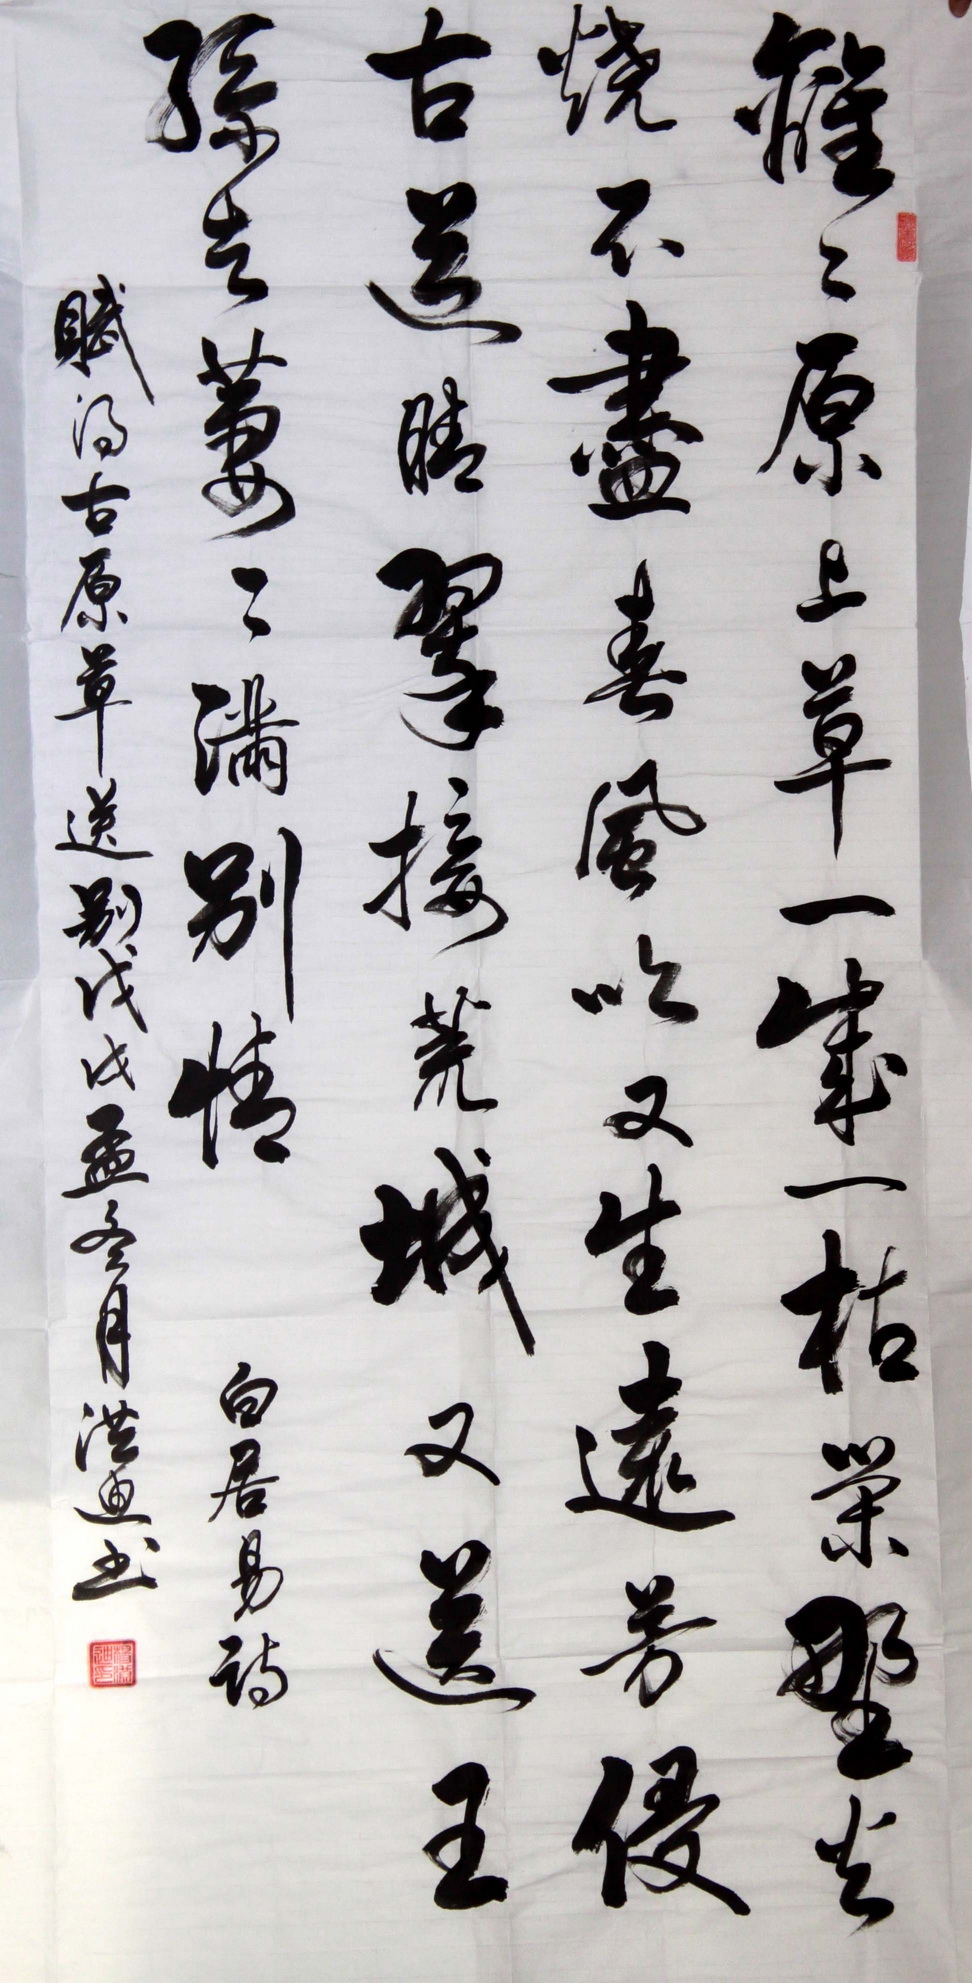 離々原上草一歲一枯榮野火
烧不盡春風吹又生遠芳侵
古道晴翠接荒城又送王
孫去萋々滿别情 白居易詩
賦得古原草送别戊戌孟冬月洪迪书